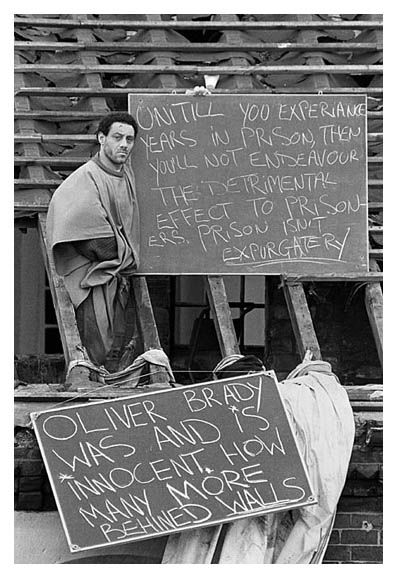 UNTILL YOU EXPERIANCE
YEARS IN PRISON, THEN
YOU'LL NOT ENDEAVOUR
THE DETRIMENTAL
EFFECT TO PRISON-
ERS. PRISON ISN'T
EXPURGATERY
OLIVER BRADY
WAS AND IS
INNOCENT. HOW
MANY MORE
BEHINED WALLS